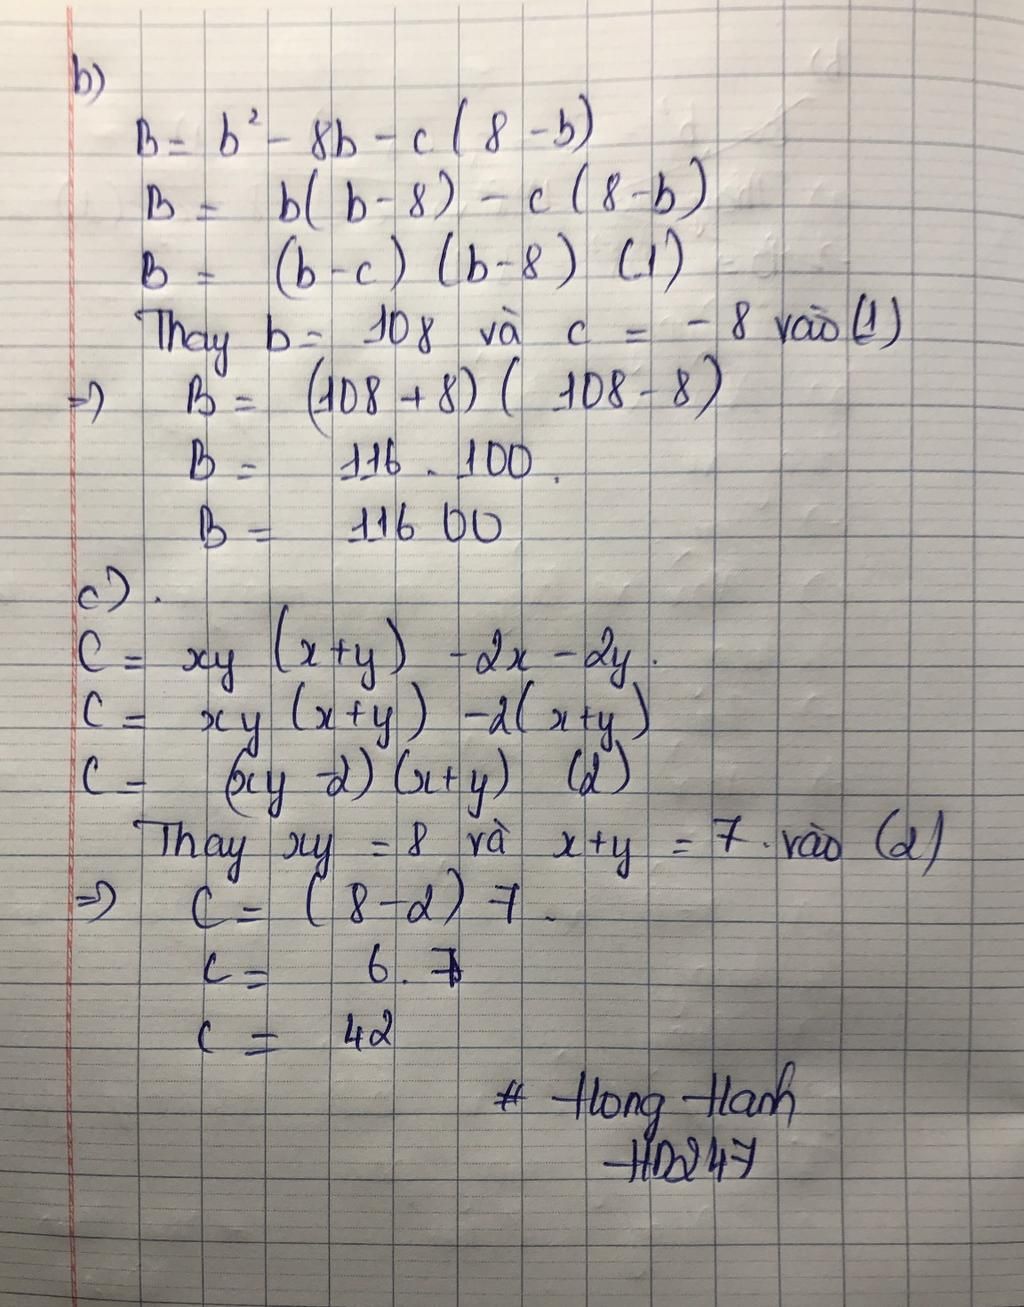 b)
B = b² - 8b - c ( 8 - b)
B = b( b - 8) - c ( 8 - b)
B = (b - c) (b - 8) (1)
Thay b = 108 và c = - 8 vào (1)
=> B = (108 + 8) ( 108 - 8)
B = 116 . 100 .
B = 116 00
c) .
C = xy (x+y) - 2x - 2y .
C = xy (x+y) -2( x+y)
C = (xy - 2) (x+y) (2)
Thay xy = 8 và x+y = 7 . vào (2)
=> C = ( 8 - 2) 7 .
C = 6 . 7
C = 42
# Hong Hanh
HD247